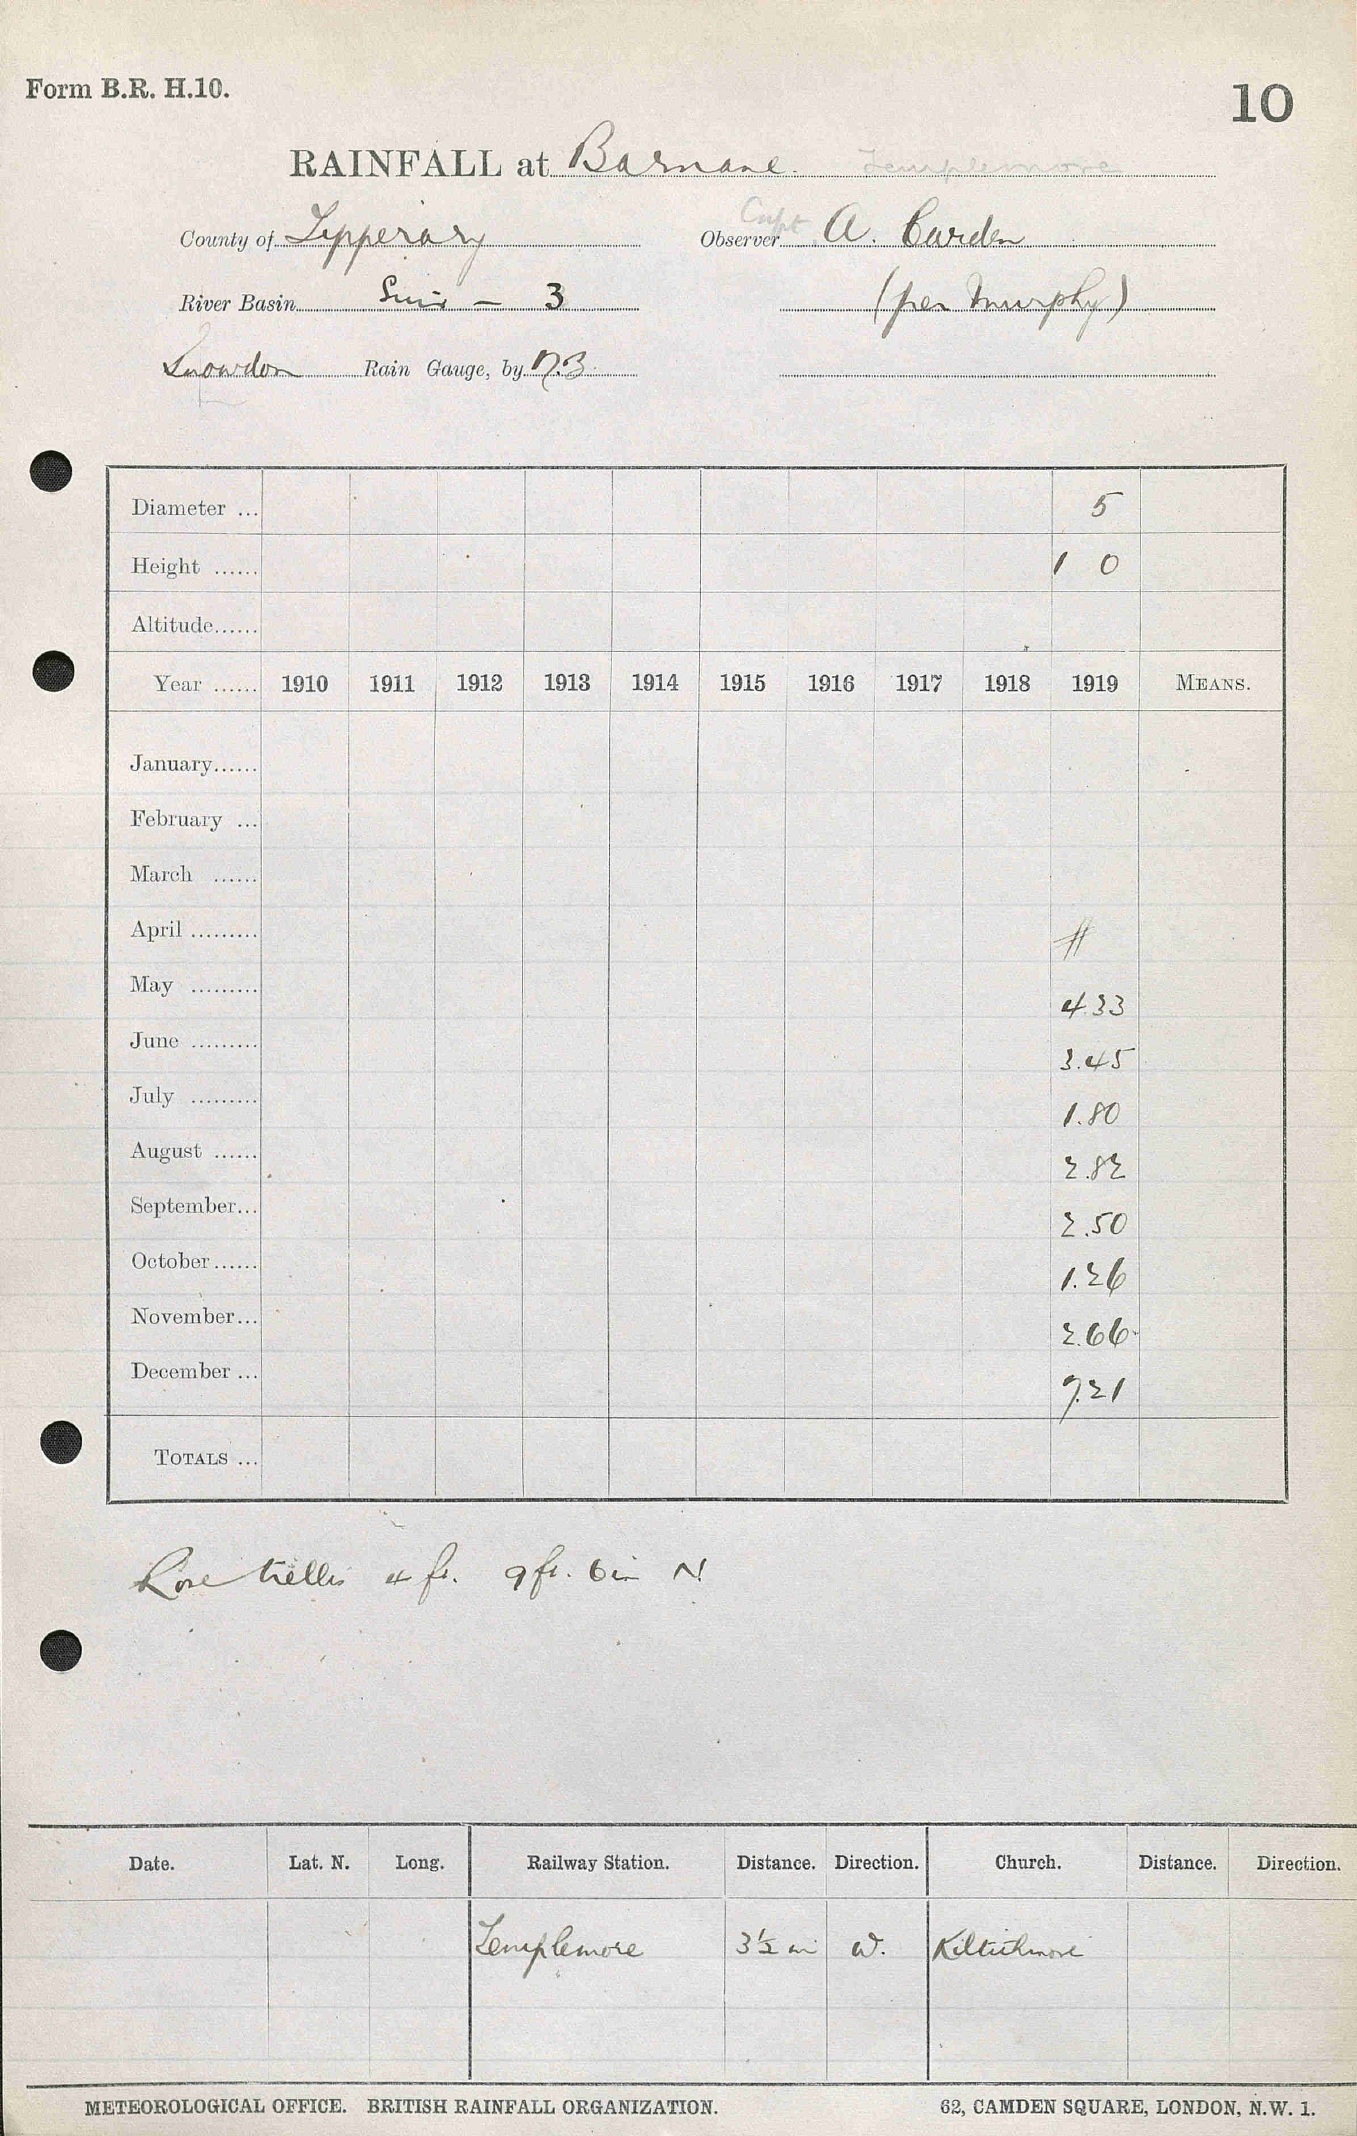 Form B.R. H.10.
10
RAINFALL at Barnane. Templemore
County of Tipperary Observer Capt. A. Carden
River Basin Suir — 3 (per Murphy)
Snowdon Rain Gauge, by N.3.
Diameter ... 5
Height ...... 1 0
Altitude......
Year ...... 1910 1911 1912 1913 1914 1915 1916 1917 1918 1919 MEANS.
January......
February ...
March ......
April .........
May ......... 4.33
June ......... 3.45
July ......... 1.80
August ...... 2.82
September... 2.50
October...... 1.26
November... 2.66
December ... 7.21
TOTALS ...
Rose trellis 4 ft. 9 ft. 6 in N.
Date. Lat. N. Long. Railway Station. Distance. Direction. Church. Distance. Direction.
Templemore 3½ m W.
METEOROLOGICAL OFFICE. BRITISH RAINFALL ORGANIZATION. 62, CAMDEN SQUARE, LONDON, N.W. 1.